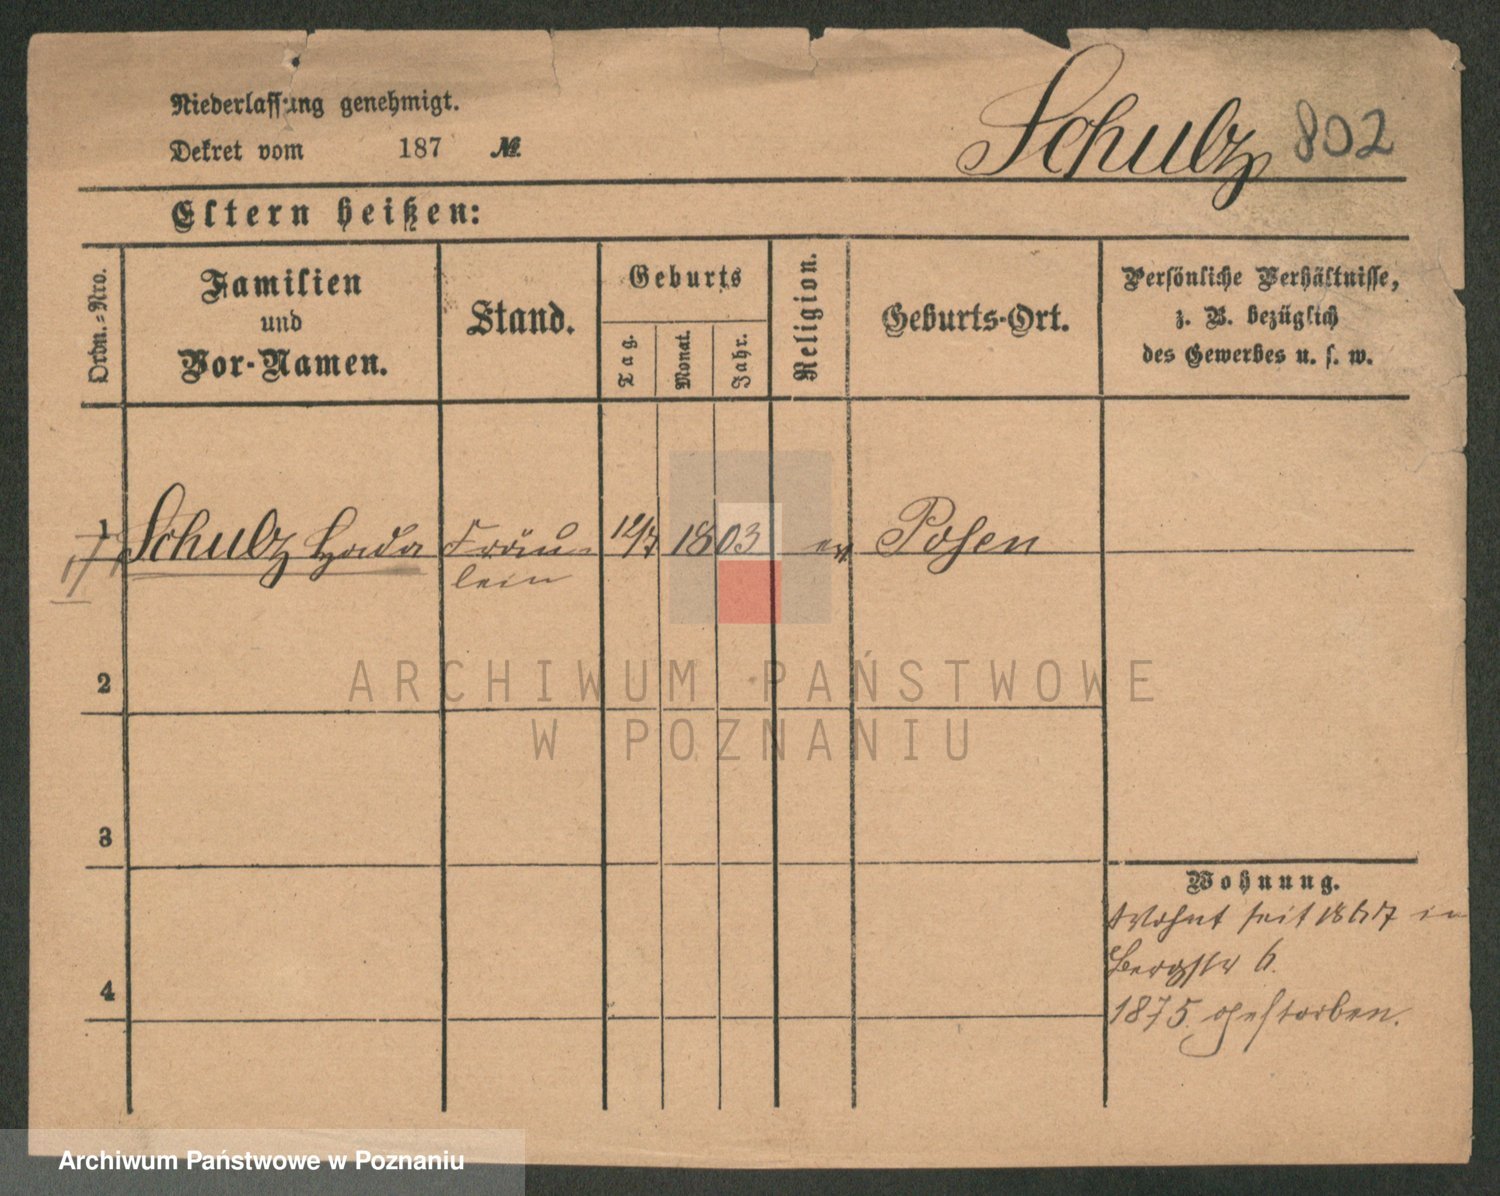 Niederlassung genehmigt.
Dekret vom 187 №
Schulz 802
Eltern heißen:
Ordn.-Nro.
Familien
und
Vor-Namen.
Stand.
Geburts
Tag.
Monat.
Jahr.
Religion.
Geburts-Ort.
Persönliche Verhältnisse,
z. B. bezüglich
des Gewerbes u. s. w.
1 Schulz Fräu- 12/7 1803 ev Posen
lein
2
3
4
Wohnung.
Wohnt seit 1867 in
Bergstr 6.
1875. gestorben.
ARCHIWUM PAŃSTWOWE
W POZNANIU
Archiwum Państwowe w Poznaniu